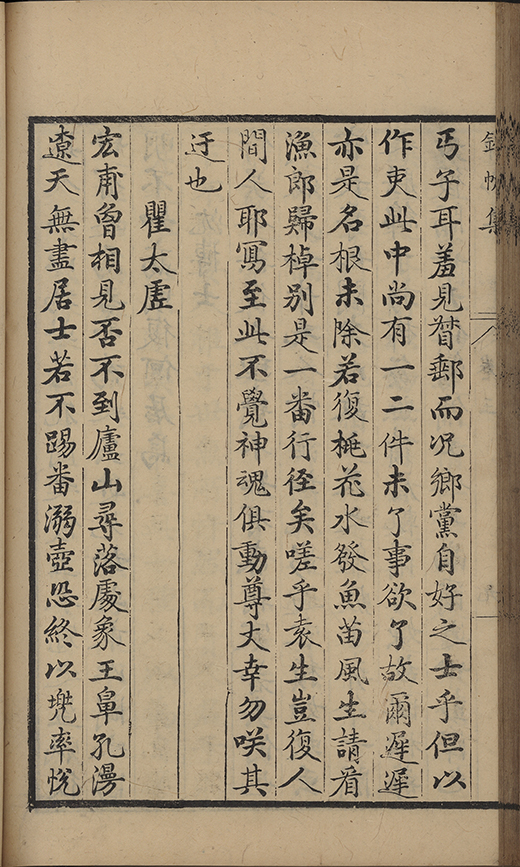 錦帆集
丐子耳羞見督郵而况鄉黨自好之士乎但以
作吏此中尚有一二件未了事欲了故爾遲遲
亦是名根未除若復桃花水發魚苗風生請看
漁郎歸棹别是一番行徑矣嗟乎袁生豈復人
間人耶冩至此不覺神魂俱動尊丈幸勿咲其
迂也
瞿太虚
宏甫曾相見否不到廬山尋落處象王鼻孔漫
遼天無盡居士若不踢番溺壺恐終以兠率恱